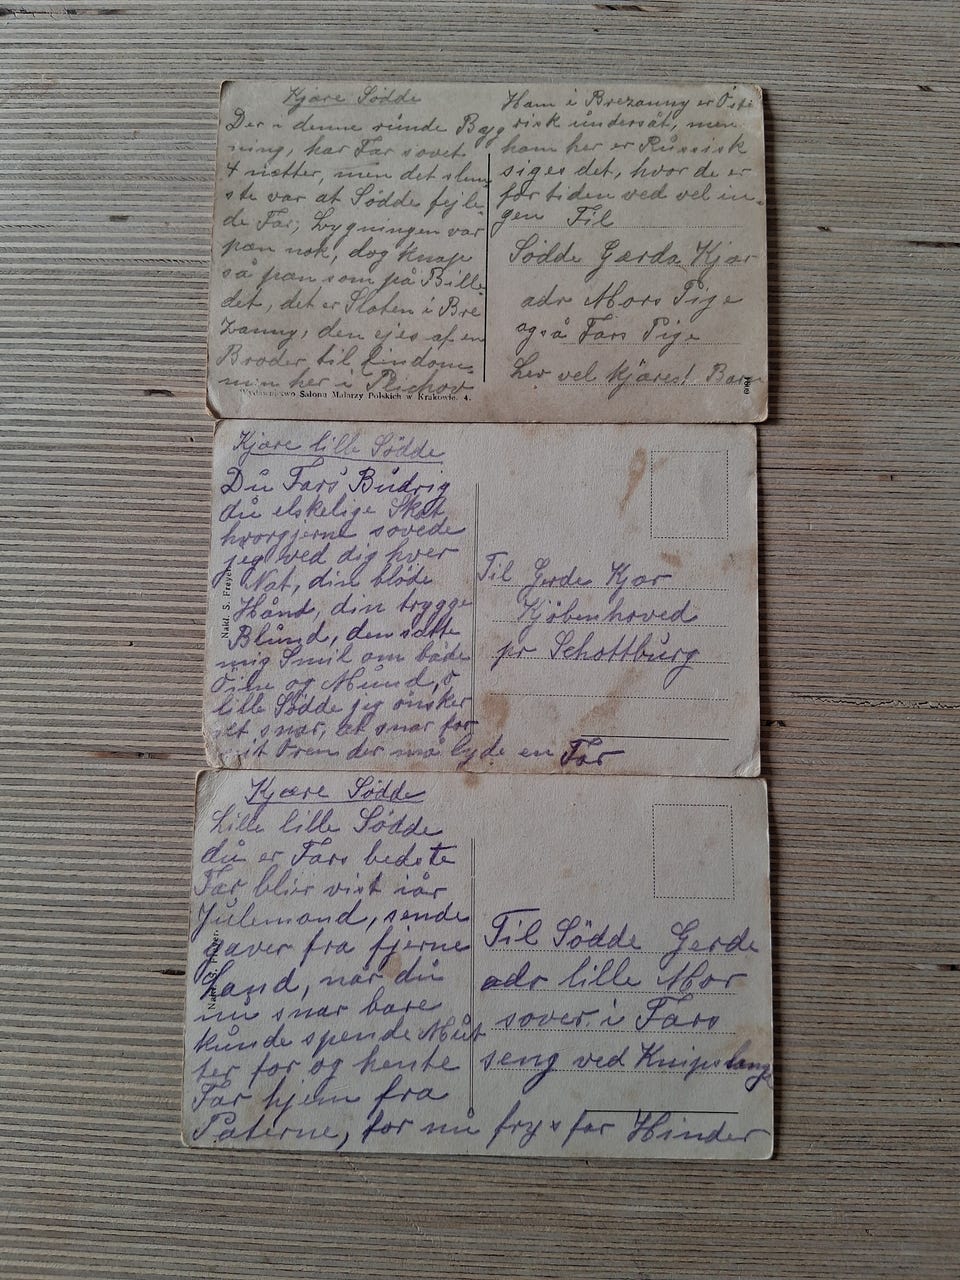 Kjære Södde
Der i denne runde Byg
ning, har Far sovet
4 nætter, men det slem
ste var at Södde fejle
de Far; bygningen var
pæn nok, dog knap
så pæn som på Bille
det, det er Sloten i Bre
zanny, den ejes af en
Broder til Eindom
min her i Plichov
Wydawnictwo Salonu Malarzy Polskich w Krakowie. 4.
Ham i Brezanny er Öste
risk undersåt, men
ham her er Russisk
siges det, hvor de er
for tiden ved vel in-
gen Til
Södde Gærda Kjær
adr Mors Pige
også Fars Pige
Lev vel kjærest Barn
Kjære lille Södde
Du Fars Budrig
du elskelige Skat
hvor gjerne sovede
jeg ved dig hver
Nat, din blöde
Hånd, din trygge
Blund, den satte
mig Smil om både
Öine og Mund, o
lille Södde jeg önsker
det snar, let snar for
mit Oren der må lyde en Far
Nakł. S. Freyer
Til Gerde Kjær
Kjöbenhoved
pr Schottburg
Kjære Södde
Lille lille Södde
du er Fars bedste
Far blir vist iår
Julemand, sende
gaver fra fjerne
Land, når du
nu snar bare
kunde spende Mut
ter for og hente
Far hjem fra
Paterne, for nu frys for Hinder
Nakł. S. Freyer.
Til Södde Gerde
adr lille Mor
sover i Fars
seng ved Knips lange